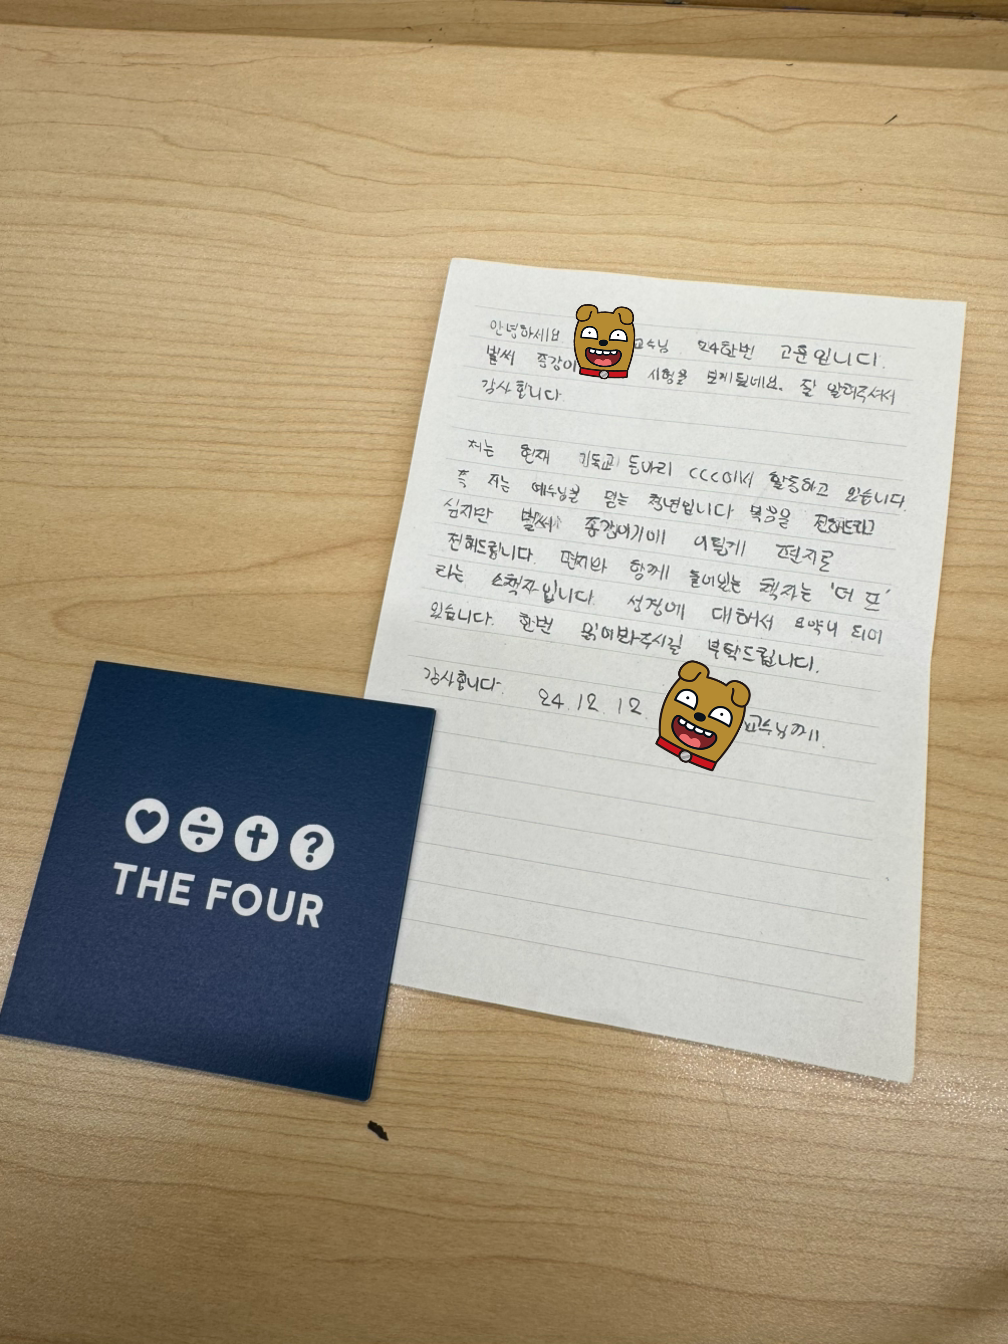 안녕하세요 교수님 24학번 고훈입니다.
벌써 종강이 시험을 보게됐네요. 잘 알려주셔서
감사합니다.
저는 현재 기독교 동아리 CCC에서 활동하고 있습니다.
즉 저는 예수님을 믿는 청년입니다 복음을 전해드리고
싶지만 벌써 종강이기에 이렇게 편지로
전해드립니다. 편지와 함께 들어있는 책자는 '더 포'
라는 소책자입니다. 성경에 대해서 요약이 되어
있습니다. 한번 읽어봐주시길 부탁드립니다.
감사합니다. 24. 12. 12. 교수님께.
THE FOUR